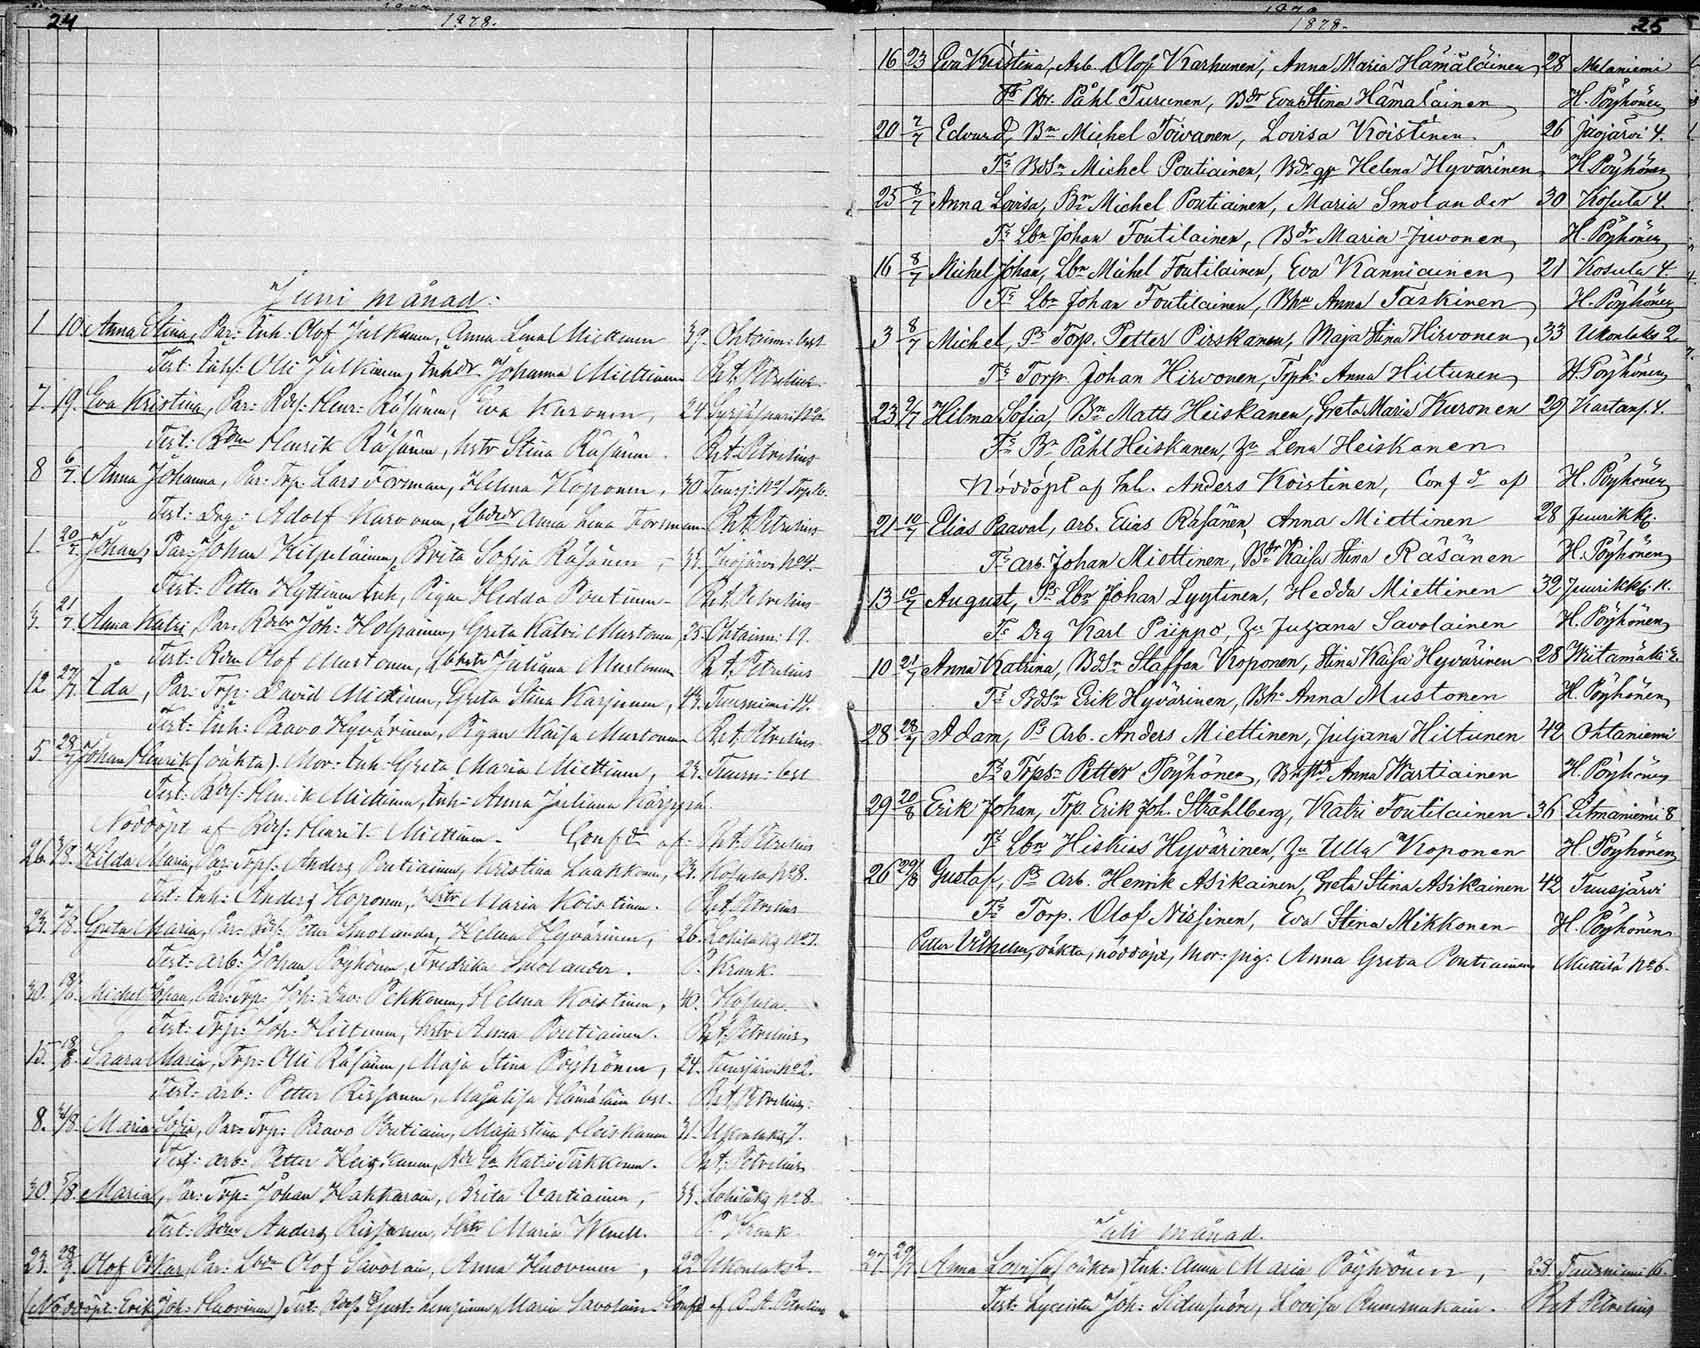 24
1878.
Juni månad:
1 10. Anna Stina, Par: Inh: Olof Julkunen, Anna Lena Miettinen 39. Ohtainn: best
Test: Inh: Olli Julkunen, Inhdr Johanna Miettinen Bt. Petrelius
7. 19. Eva Kristina, Par: Bdsf: Henr: Räsänen, Eva Kuronen, 24.
Test: Bdm Henrik Räsänen, hstr Stina Räsänen. Bt. Petrelius
8 6/7. Anna Johanna, Par: Trp: Lars Forsman, Helena Koponen, 30
Test: Dng: Adolf Kuronen, Anna Lena Forsman Bt. Petrelius
1. 20/7. Johan, Par: Johan Kilpeläinen, Brita Sofia Räsänen 33. Juojärvi No 4.
Test: Petter Hyttinen Inh, Pigan Hedda Pentinen Bt. Petrelius
21/7. Anna Katri, Par: Joh: Holpainen, Greta Katri Mustonen, 35. Ohtainn: 19.
Test: Bdm Olof Mustonen, Juliana Mustonen Bt. Petrelius
12 27/7. Ida, Par: Trp: David Miettinen, Greta Stina Karjunen, 44. Tuusniemi 14.
Test: Inh: Paavo Hyvärinen, Pigan Kaisa Mustonen Bt. Petrelius
5 28/7 Johan Henrik (oäkta). Mor: Inh: Greta Maria Miettinen, 23. Tuusn: best
Test: Bdsf: Henrik Miettinen, Inh: Anna Juliana
Nöddöpt af Bdsf: Henrik Miettinen. Confd af: Bt. Petrelius
26. 3/8. Hilda Maria, Par: Torpf: Anders Pentiainen, Kristina Laakkonen, 23. Kosula No 8.
Test: Inh: Anders Koponen, hstr Maria Koistinen. Bt. Petrelius
23. /8. Greta Maria, Par: Bdsf: Petter Smolander, Helena Hyvärinen, 26. No 7.
Test: arb: Johan Pöyhönen, Fredrika Smolander. P. Krank.
30. Michel Johan, Par: Trp: Joh: Dav: Pekkonen, Helena Koistinen, 40. Kosula.
Test: Trp: Joh: Hiltunen, hstr Anna Pentiainen. Bt. Petrelius
15. 18/8. Saara Maria, Trp: Olli Räsänen, Maja Stina Pöyhönen, 24. Tuusjärvi No 2.
Test: arb: Petter Rissanen, Majalisa Hämäläin best. Bt. Petrelius
8. /8. Maria Sofia, Par: Trp: Paavo Pentiain, Majastina Heiskanen 31. 7.
Test: arb: Petter Heiskanen, Katri Tirkkonen. Bt. Petrelius
30. /8. Maria, Par: Trp: Johan Hakkarain, Brita Vartiainen, 33. No 8.
Test: Bdm Anders Rissanen, hstr Maria Wenell. P. Krank
23. Olof Oskar, Par: Lbdm Olof Savolain, Anna Huovinen, 22 Ukonlaks 2.
(Nöddöpt: Erik Joh: Huovinen) Test: Bdsf Gust: Lempinen, Maria Savolain Confd af B. A. Petrelius
25
1878.
16 23 Eva Kristina, Arb. Olof Karhunen, Anna Maria Hämäläinen 28 Melaniemi
Ts Bdr. Påhl Turunen, Bdr Eva Stina Hämäläinen H. Pöyhönen
20 2/7 Edvard, Bn Michel Toivanen, Lovisa Koistinen 26 Juojärvi 4.
Ts Bdsn Michel Pentiainen, Bdr Helena Hyvärinen H. Pöyhönen
25 8/7 Anna Lovisa, Bn Michel Pentiainen, Maria Smolander 30 Kosula 4.
Ts Lbn Johan Tontilainen, Bdr Maria Juvonen H. Pöyhönen
16 8/7 Michel Johan, Lbn Michel Tontilainen, Eva Kanniainen 21 Kosula 4.
Ts Lbn Johan Tontilainen, Bhu Anna Taskinen H. Pöyhönen
3 8/7 Michel, Ps Torp. Petter Pirskanen, Maja Stina Hirvonen 33 Ukonlaks 2
Ts Torp. Johan Hirvonen, Trph: Anna Hiltunen H. Pöyhönen
23 9/7 Hilma Sofia, Bn Matts Heiskanen, Greta Maria Kuronen 29 Kartans. 4.
Ts Bn Påhl Heiskanen, Zn Lena Heiskanen
Nöddöpt af Inh. Anders Koistinen, Confd af H. Pöyhönen
21 10/7 Elias Paaval, arb. Elias Räsänen, Anna Miettinen 28 Juurikk.
Ts arb. Johan Miettinen, Bdr Kaisa Stina Räsänen H. Pöyhönen
13 10/7 August, Ps Lbn Johan Lyytinen, Hedda Miettinen 32 Juurikk. 11.
Ts Drg Karl Piippo, Zn Juljana Savolainen H. Pöyhönen
10 21/7 Anna Katrina, Bdsn Staffan Koponen, Stina Kaisa Hyvärinen 28 Kiitamäki 2.
Ts Bdsn Erik Hyvärinen, Bhr Anna Mustonen H. Pöyhönen
28 28/7 Adam, Ps Arb. Anders Miettinen, Juljana Hiltunen 42 Ohtaniemi
Ts Trps Petter Pöyhönen, Anna Wartiainen H. Pöyhönen
29 20/8 Erik Johan, Trp. Erik Joh. Stråhlberg, Katri Tontilainen 36 Litmaniemi 8
Ts Lbn Hiskias Hyvärinen, Zn Ulla Koponen H. Pöyhönen
26 29/8 Gustaf, Ps arb. Henrik Asikainen, Greta Stina Asikainen 42 Tuusjärvi
Ts Torp. Olof Nissinen, Eva Stina Mikkonen H. Pöyhönen
Petter Vilhelm, oäkta, nöddöpt, Mor: pig: Anna Greta Pentiainen Miettilä No 6.
Juli månad.
27 29/7 Anna Lovisa (oäkta) Inh: Anna Maria Pöyhönen, 28. Tuusniemi 16.
Test: Joh: Lovisa Rummukain. Bt. Petrelius